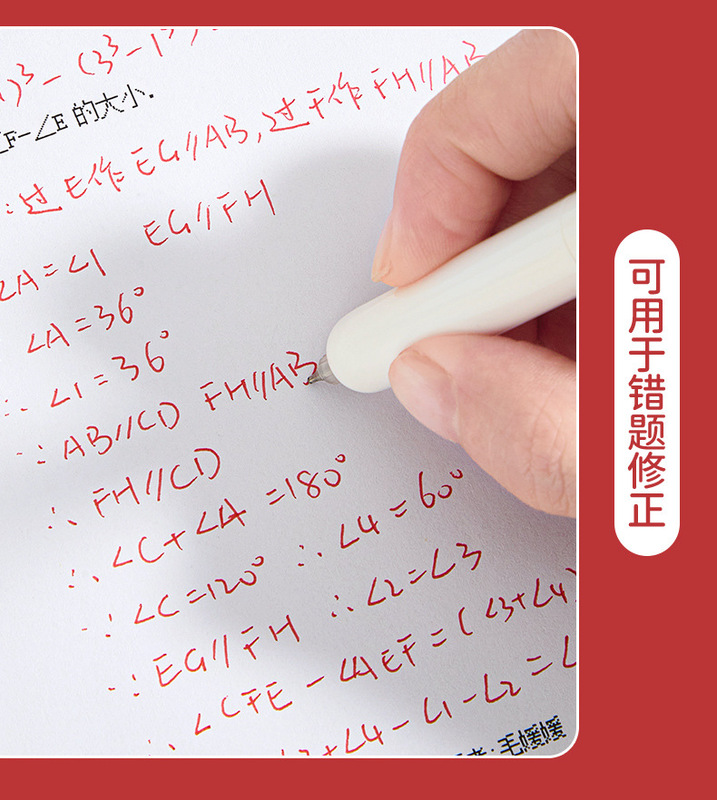 )³-(3³-1³)
F-∠E 的大小.
:过E作EG//AB,过F作FH//AB
EG//FH
∠A=∠1
∠A=36°
∴ ∠1=36°
∵ AB//CD FH//AB
∴ FH//CD
∴ ∠C+∠A =180°
∵ ∠C=120° ∴ ∠4=60°
∵ EG//FH ∴ ∠2=∠3
∴ ∠CFE-∠AEF=(∠3+∠4)
+∠4-∠1-∠2=∠
: 毛媛媛
可用于错题修正